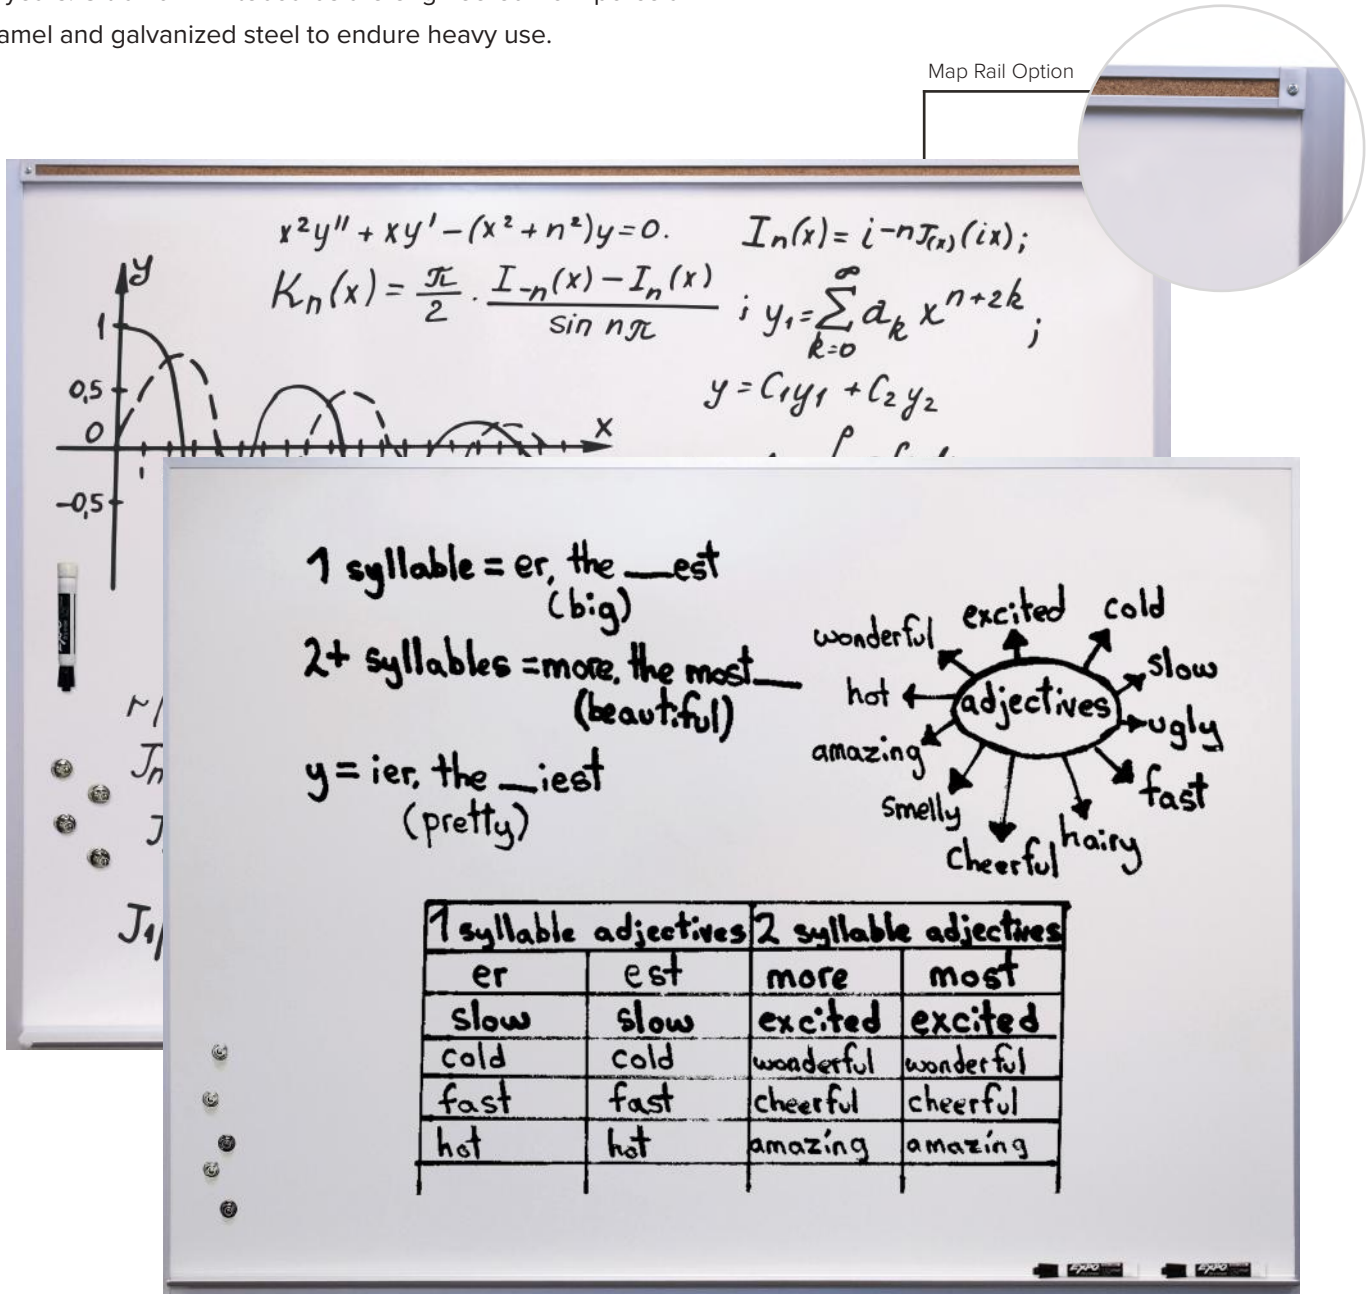 amel and galvanized steel to endure heavy use.
Map Rail Option
x²y'' + xy' - (x² + n²)y = 0.
Iₙ(x) = i⁻ⁿJ₍ₓ₎(ix);
Kₙ(x) = π/2 · (I₋ₙ(x) - Iₙ(x))/(sin nπ) ;
y₁ = ∞Σk=0 aₖ xⁿ⁺²ᵏ ;
y = C₁y₁ + C₂y₂
y
1
0,5
0
x
1
-0,5
EXPO
1 syllable = er, the __est
(big)
2+ syllables = more, the most__
(beautiful)
y = ier, the __iest
(pretty)
adjectives
wonderful
excited
cold
slow
ugly
fast
hairy
cheerful
smelly
amazing
hot
1 syllable adjectives 2 syllable adjectives
er est more most
slow slow excited excited
cold cold wonderful wonderful
fast fast cheerful cheerful
hot hot amazing amazing
EXPO EXPO